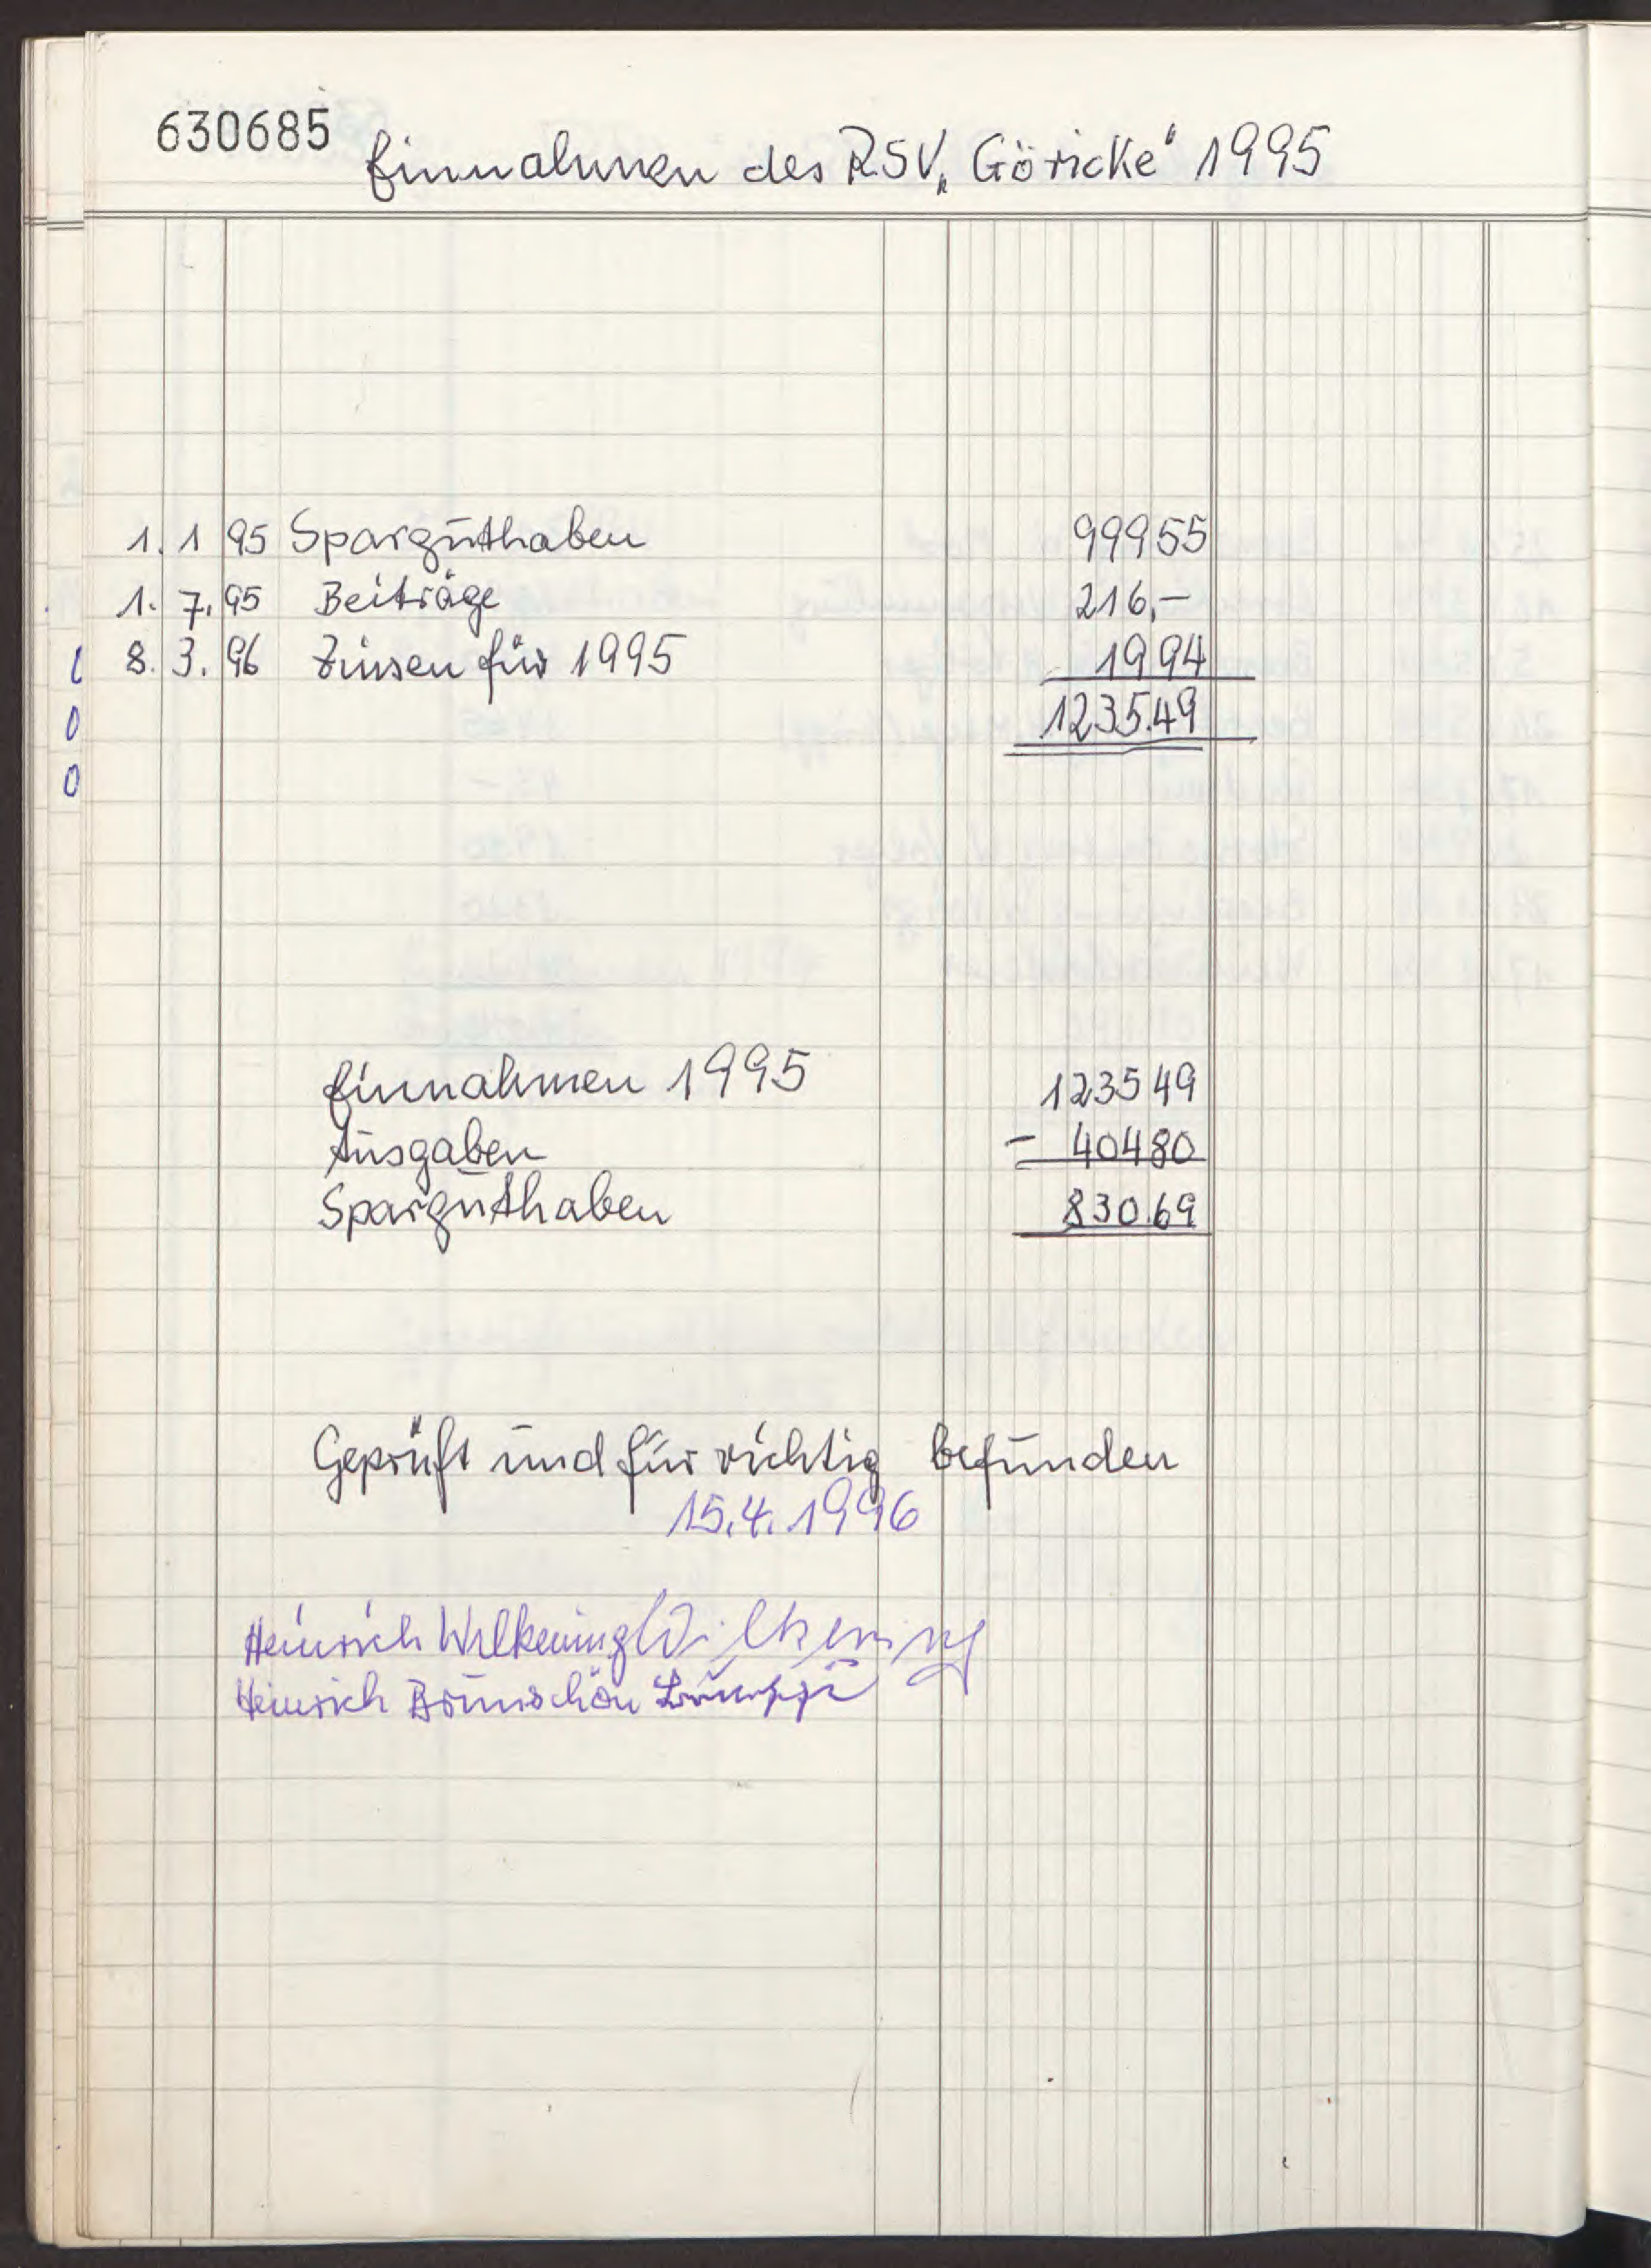 630685
Einnahmen des RSV „Göricke“ 1995
1. 1 95 Sparguthaben 99955
1. 7. 95 Beiträge 216,-
8. 3. 96 Zinsen für 1995 1994
1235.49
Einnahmen 1995 123549
Ausgaben - 40480
Sparguthaben 830.69
Geprüft und für richtig befunden
15.4.1996
Heinrich Wilkening Wilkening
Heinrich Brünschön